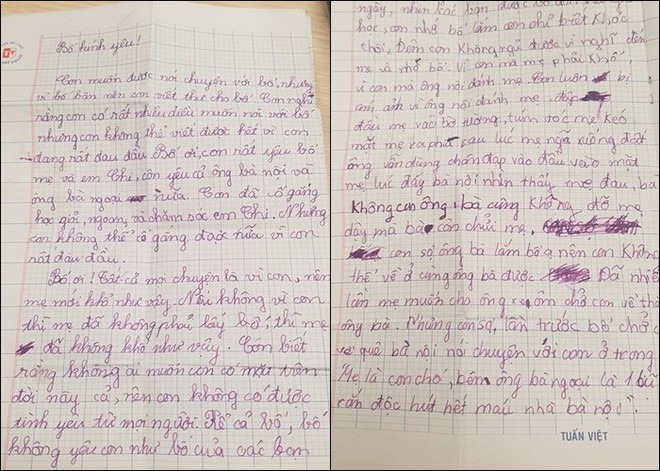 Bố kính yêu!
Con muốn được nói chuyện với bố, nhưng
vì bố bận nên con viết thư cho bố. Con nghĩ
rằng con có rất nhiều điều muốn nói với bố
nhưng con không thể viết được hết vì con
đang rất đau đầu. Bố ơi, con rất yêu bố
mẹ và em Chi, con yêu cả ông bà nội và
ông bà ngoại nữa. Con đã cố gắng
học giỏi, ngoan, và chăm sóc em Chi. Nhưng
con không thể cố gắng được nữa vì con
rất đau đầu.
Bố ơi! Tất cả mọi chuyện là vì con, nên
mẹ mới khổ như vậy. Nếu không vì con
thì mẹ đã không phải lấy bố, thì mẹ
đã không khổ như vậy. Con biết
rằng không ai muốn con có mặt trên
đời này cả, nên con không có được
tình yêu từ mọi người. Kể cả bố, bố
không yêu con như bố của các bạn
ngày, nhìn các bạn được bố
học, con nhớ bố lắm con chỉ biết khóc
thôi, Đêm con không ngủ được vì nghĩ đến
mẹ và nhớ bố. Vì con mà mẹ phải khổ,
vì con mà ông nội đánh mẹ. Con luôn bị
ám ảnh vì ông nội đánh mẹ, đập
đầu mẹ vào bờ tường, túm tóc mẹ kéo
mắt mẹ ra phía sau lúc mẹ ngã xuống đất
ông vẫn dùng chân đạp vào đầu vào mặt
mẹ, lúc đấy bà nội nhìn thấy mẹ đau, bà
không can ông, bà cũng không đỡ mẹ
dậy mà bà còn chửi mẹ,
con sợ ông bà lắm bố ạ, nên con không
thể về ở cùng ông bà được. Đã nhiều
lần mẹ muốn cho ông xe ôm chở con về thăm
ông bà. Nhưng con sợ, lần trước bố chở con
về quê bà nội nói chuyện với con ở trong
"Mẹ là con chó, bên ông bà ngoại là 1 lũ
cắn độc hút hết máu nhà bà nội".
TUẤN VIỆT